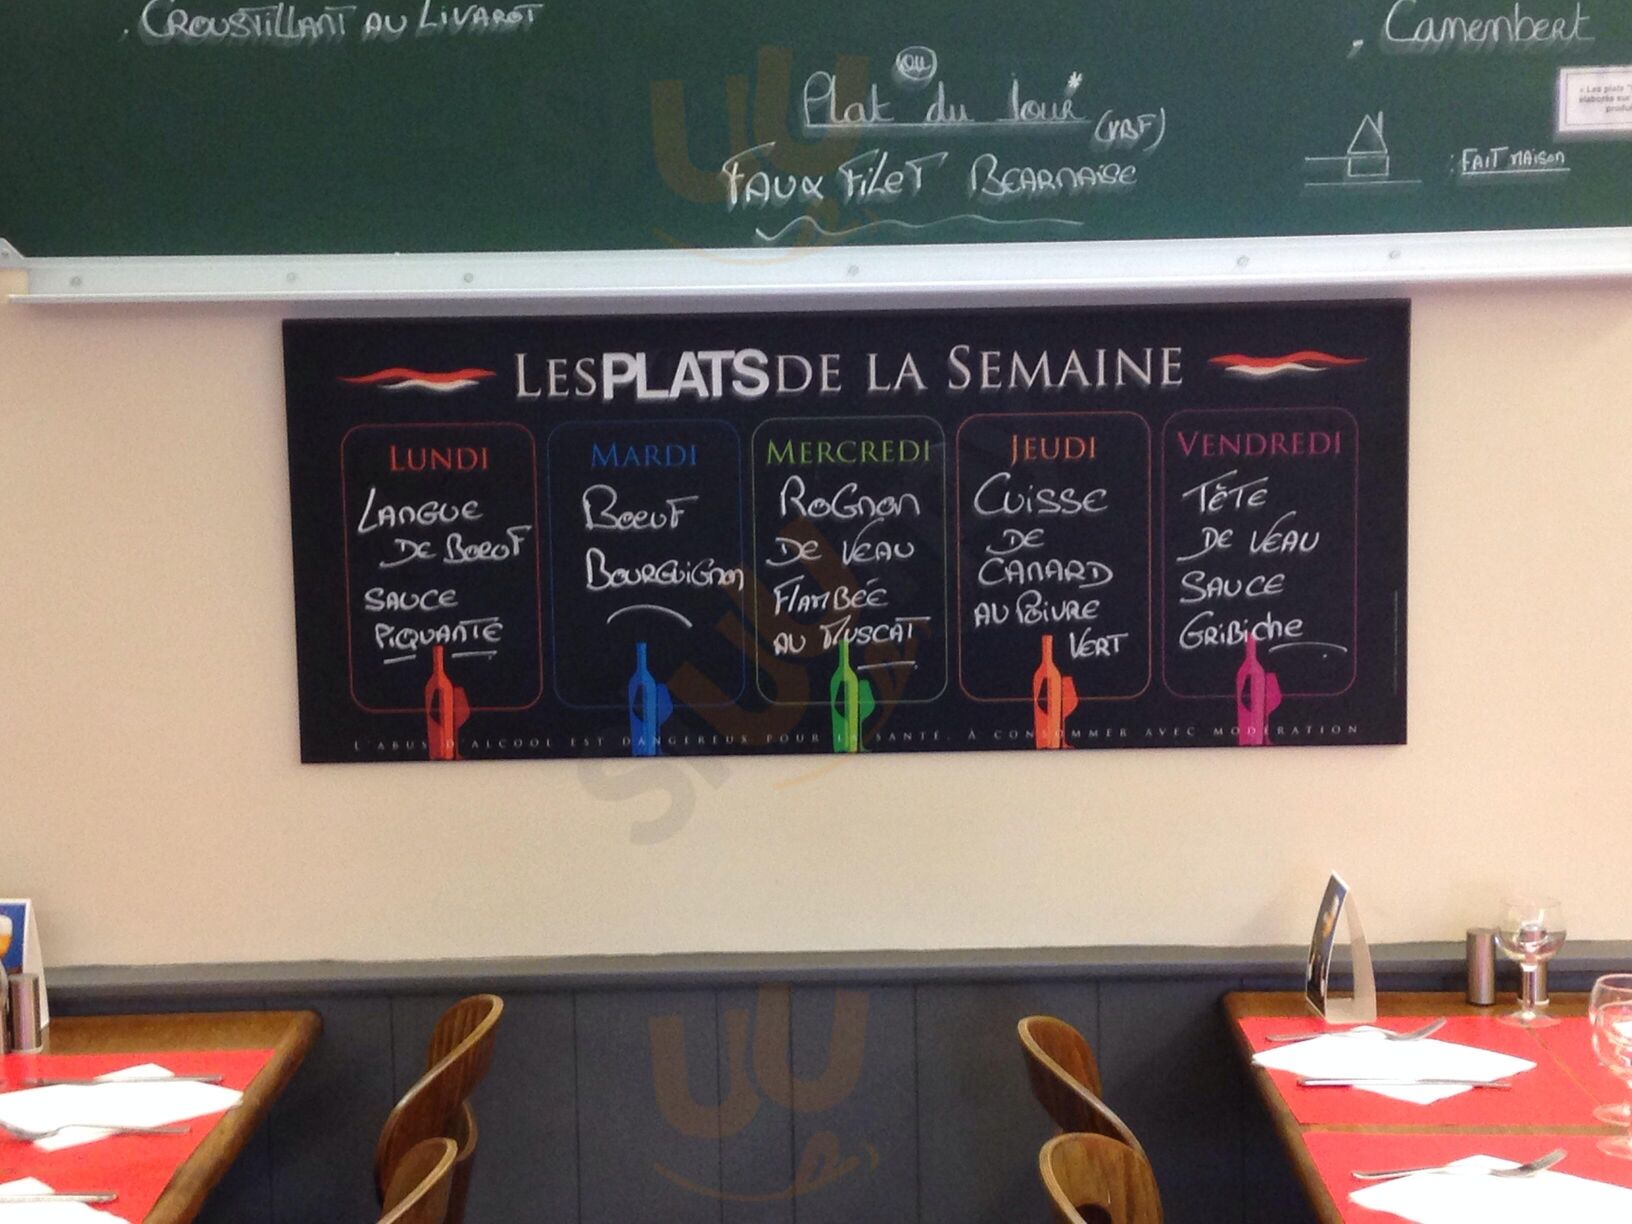 . CROUSTILLANT AU LIVAROT
. Camembert
ou
Plat du jour*
(VBF)
FAUX FILET BEARNAISE
: FAIT MAISON
« Les plats "
élaborés sur
LES PLATS DE LA SEMAINE
LUNDI
LANGUE
DE BOEUF
SAUCE
PIQUANTE
MARDI
BOEUF
BOURGUIGNON
MERCREDI
ROGNON
DE VEAU
FLAMBÉE
AU MUSCAT
JEUDI
CUISSE
DE
CANARD
AU POIVRE
VERT
VENDREDI
TÊTE
DE VEAU
SAUCE
GRIBICHE
L'ABUS D'ALCOOL EST DANGEREUX POUR LA SANTÉ. À CONSOMMER AVEC MODÉRATION